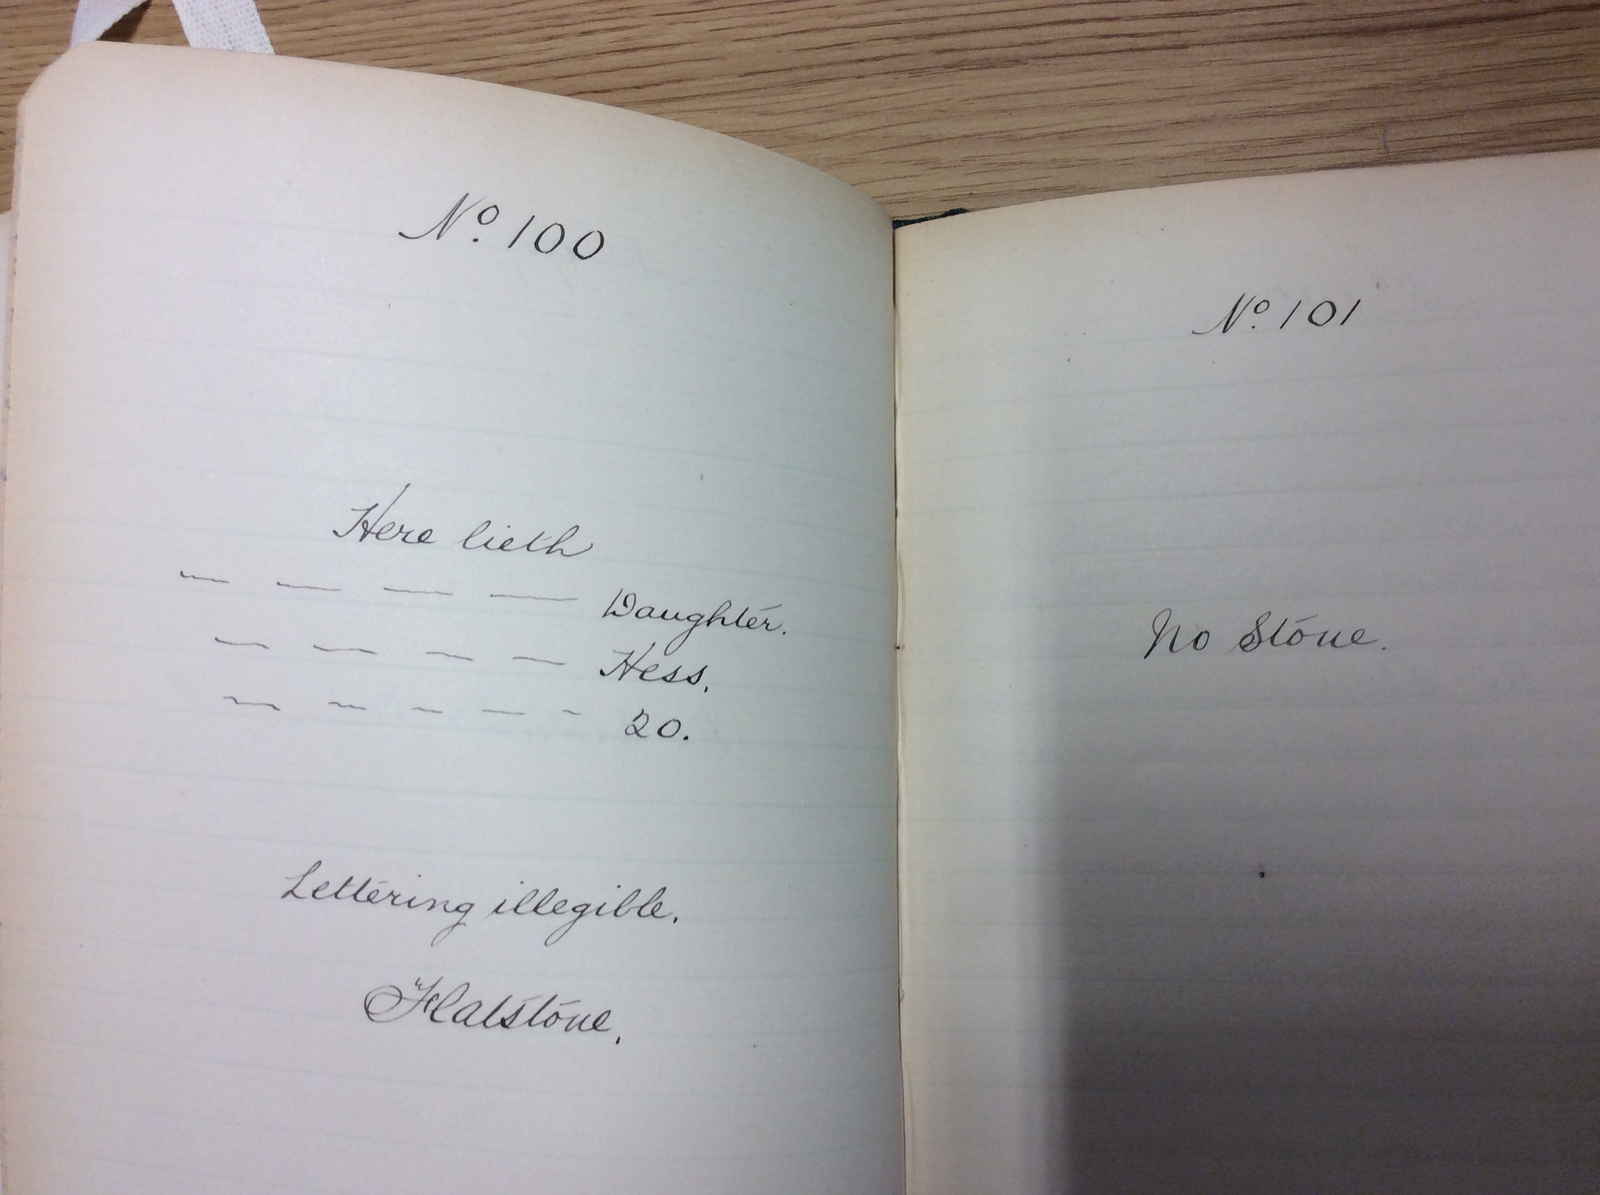 No. 100
Here lieth
— — — — Daughter.
— — — — Hess.
— — — — - 20.
Lettering illegible.
Flatstone.
No. 101
No Stone.